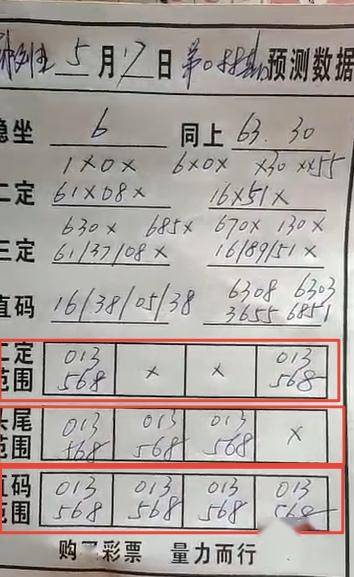 5月17日第088期预测数据
稳坐 6 同上 63.30
1×0× 6×0× ×30× ××55
二定 61×08× 16×51×
630× 685× 670× 130×
三定 61/37/08× 16/89/51×
直码 16/38/05/38 6308 6303
3655 6851
二定 013 × × 013
范围 568 568
头尾 013 013 013 ×
范围 568 568 568
直码 013 013 013 013
范围 568 568 568 568
购彩票 量力而行